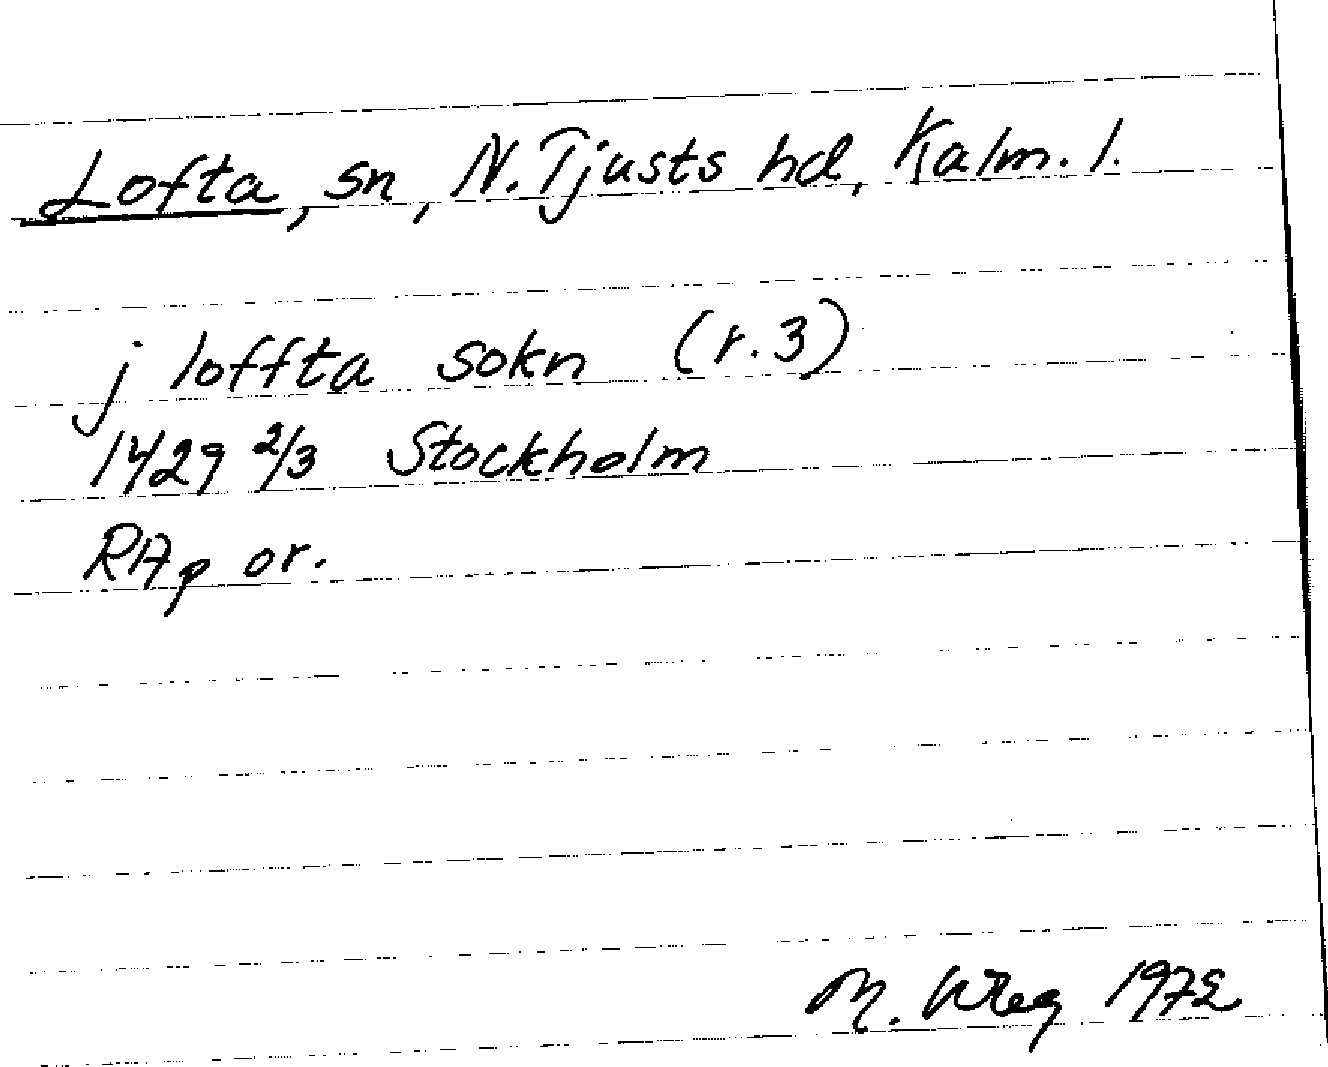 Lofta, sn, N. Tjusts hd, Kalm. l.
j loffta sokn (r. 3)
1429 2/3 Stockholm
RAp or.
M. 1972